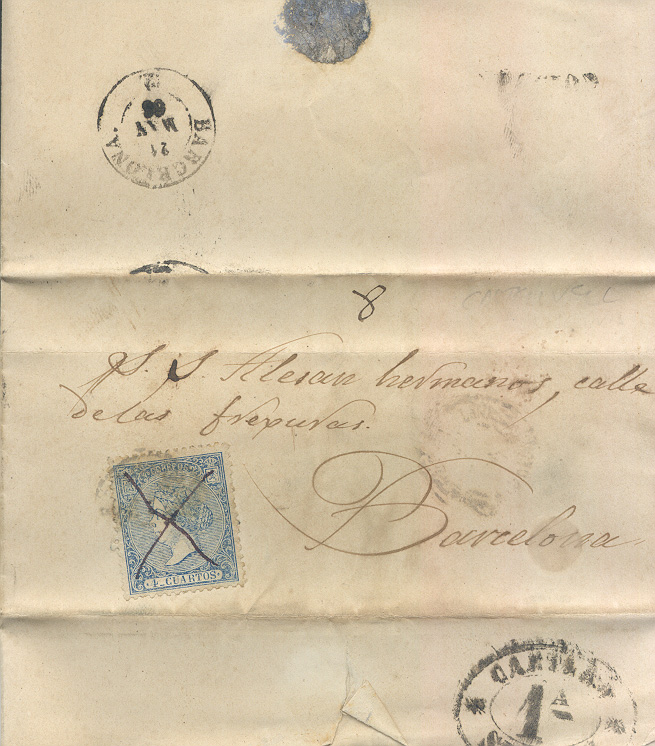 BARCELONA
21
MAY
66
8
S. S. Alesan hermanos, calle
de las frexuras.
Barcelona
4 CUARTOS
CARTERÍA
1ª